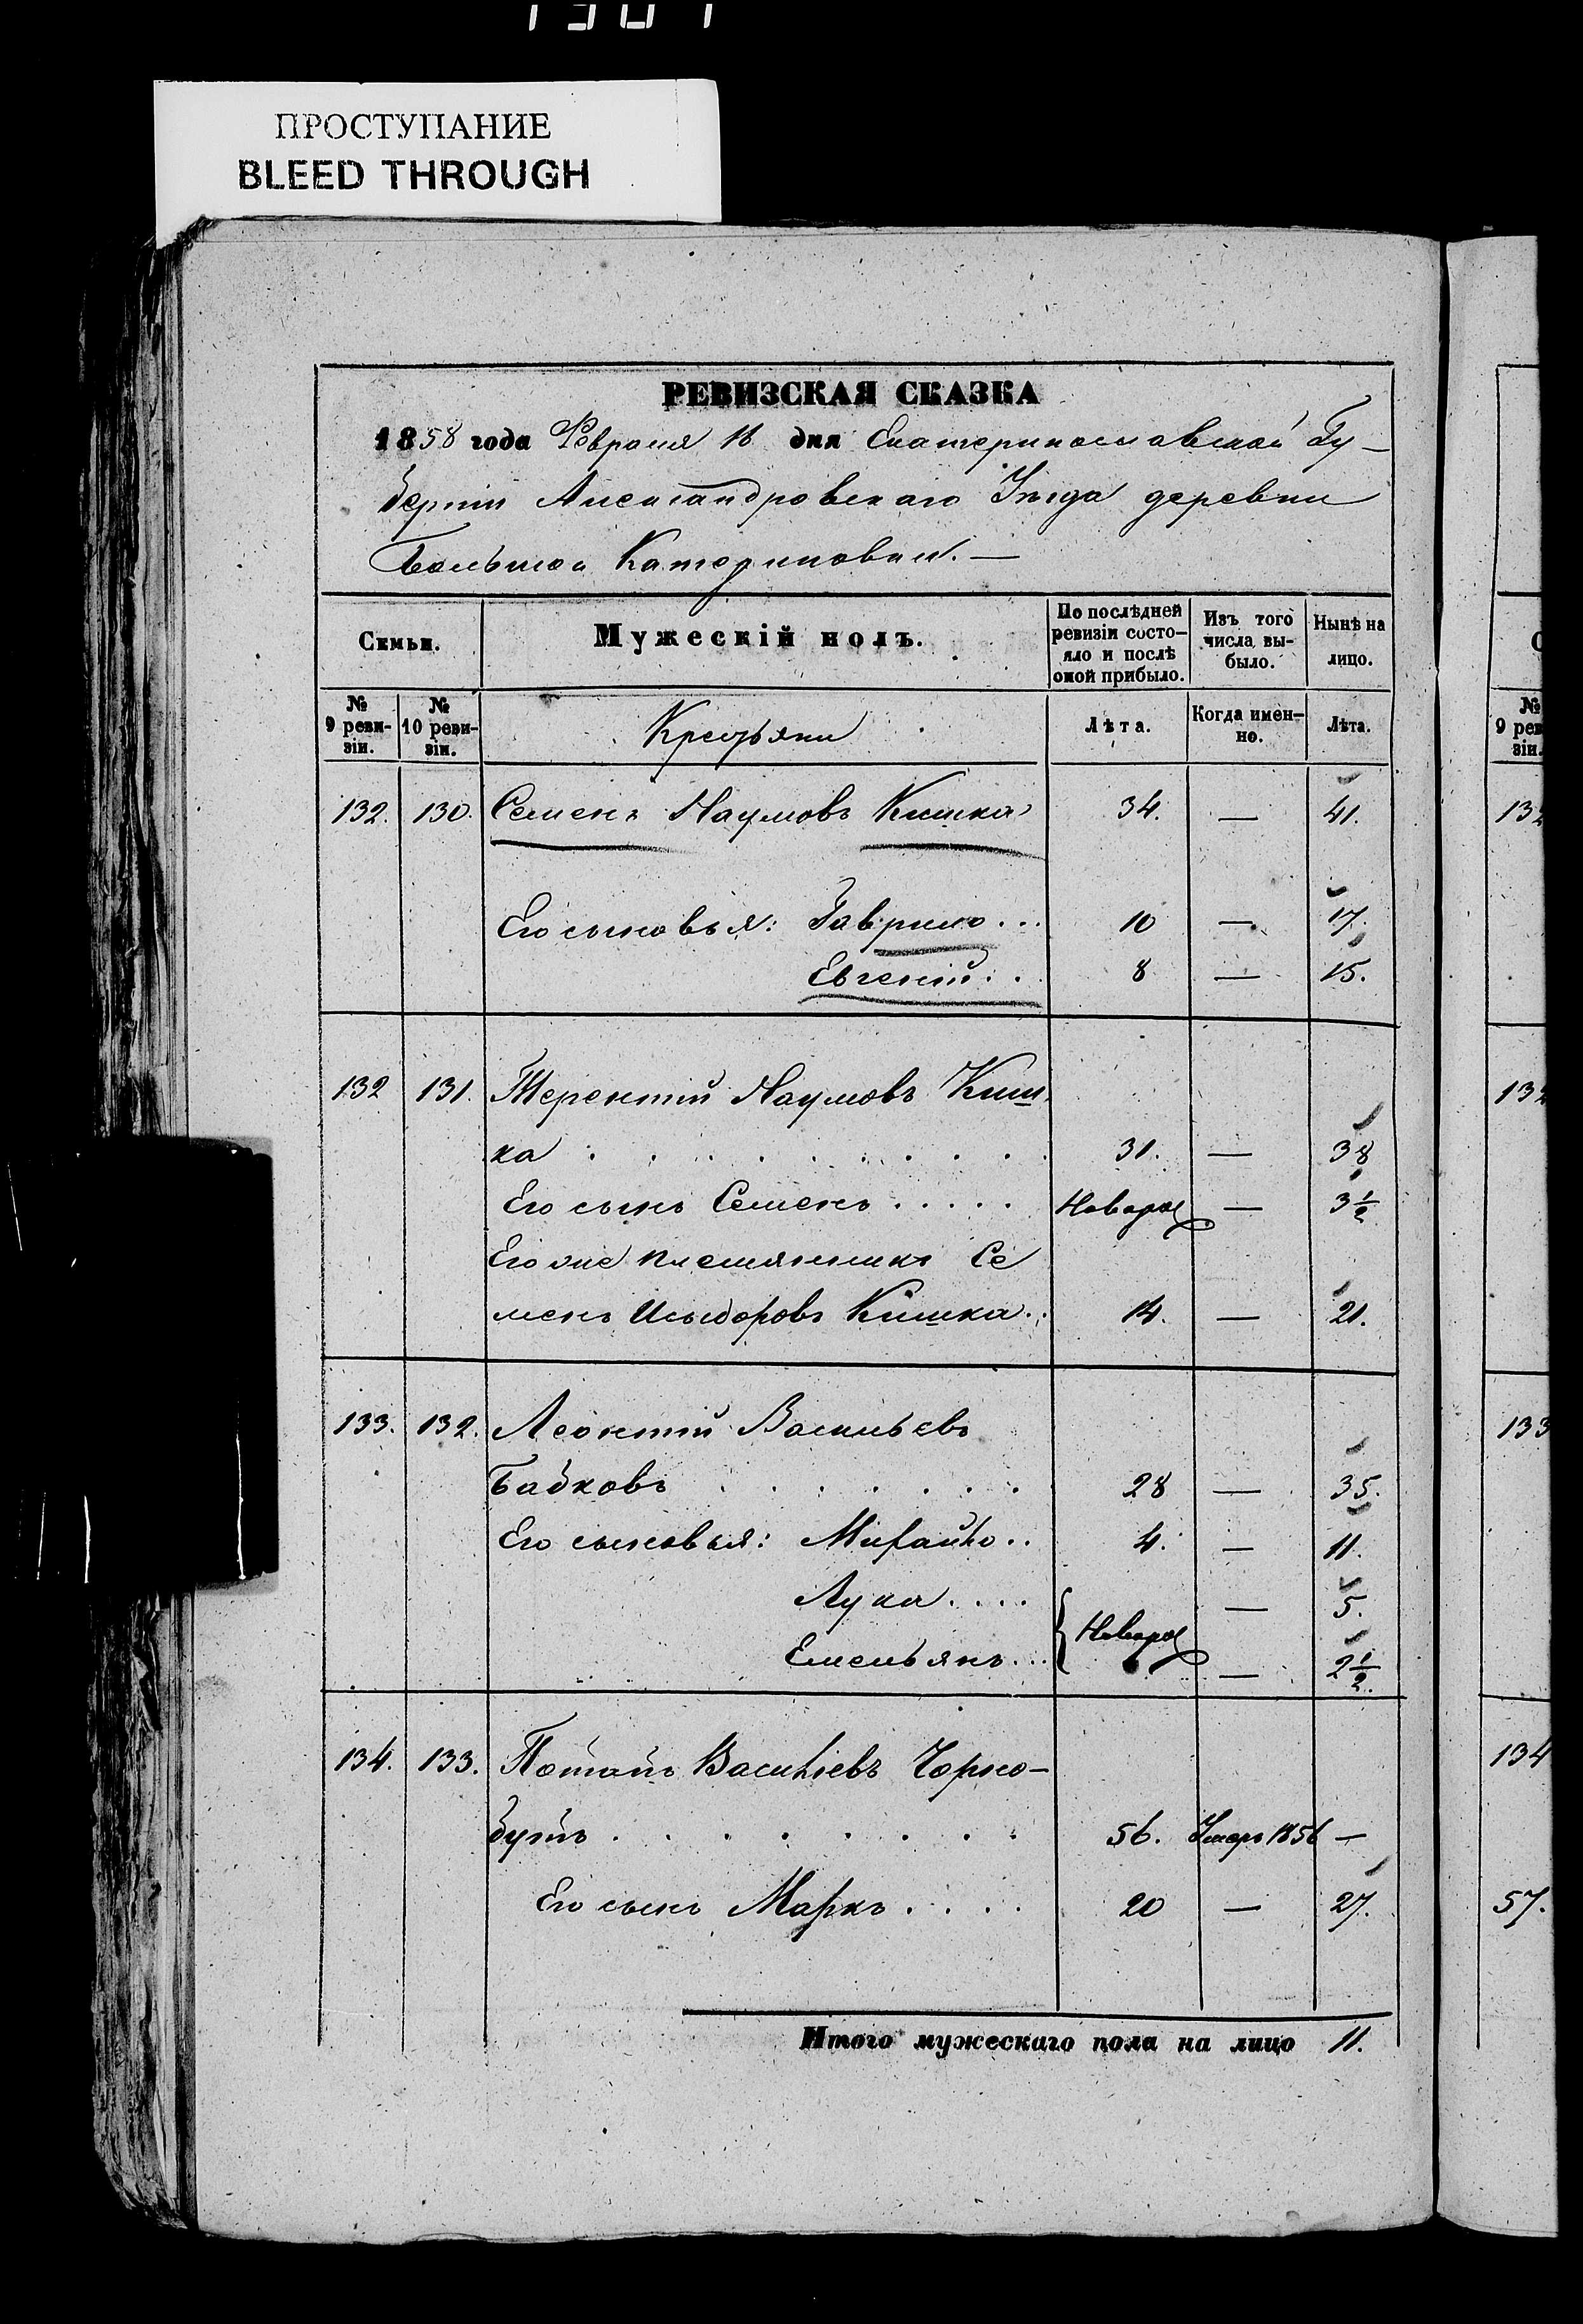 ПРОСТУПАНИЕ
BLEED THROUGH
РЕВИЗСКАЯ СКАЗКА
1858 года Февраля 18 дня Екатеринославской Гу-
берніи Александровскаго Уѣзда деревни
Большой Катериновки. —
Семьи. Мужескій полъ. По послѣдней ревизіи состо- яло и послѣ оной прибыло. Изъ того числа вы- было. Нынѣ на лицо.
№ 9 реви- зіи. № 10 реви- зіи. Крестьяни Лѣта. Когда имен- но. Лѣта.
132. 130. Семенъ Наумовъ Кишка 34. — 41.
Его сыновья: Гаврило... 10 — 17.
Евгеній... 8 — 15.
132 131. Терентій Наумовъ Киш
ка . . . . . . . . . 31. — 38
Его сынъ Семенъ..... Новорож — 3½
Его же племянникъ Се
менъ Исидоровъ Кишка.. 14. — 21.
133. 132. Леонтій Васильевъ
Бабковъ . . . . . . . 28 — 35.
Его сыновья: Михайло.. 4. — 11.
Лука.... — 5.
Новорож
Емельянъ... — 2½.
134. 133. Потапъ Васильевъ Чорно-
бутъ . . . . . . . . 56. Умеръ 1856 —
Его сынъ Маркъ.... 20 — 27.
Итого мужескаго пола на лицо 11.
№ 9 рев зін.
133
134
57.